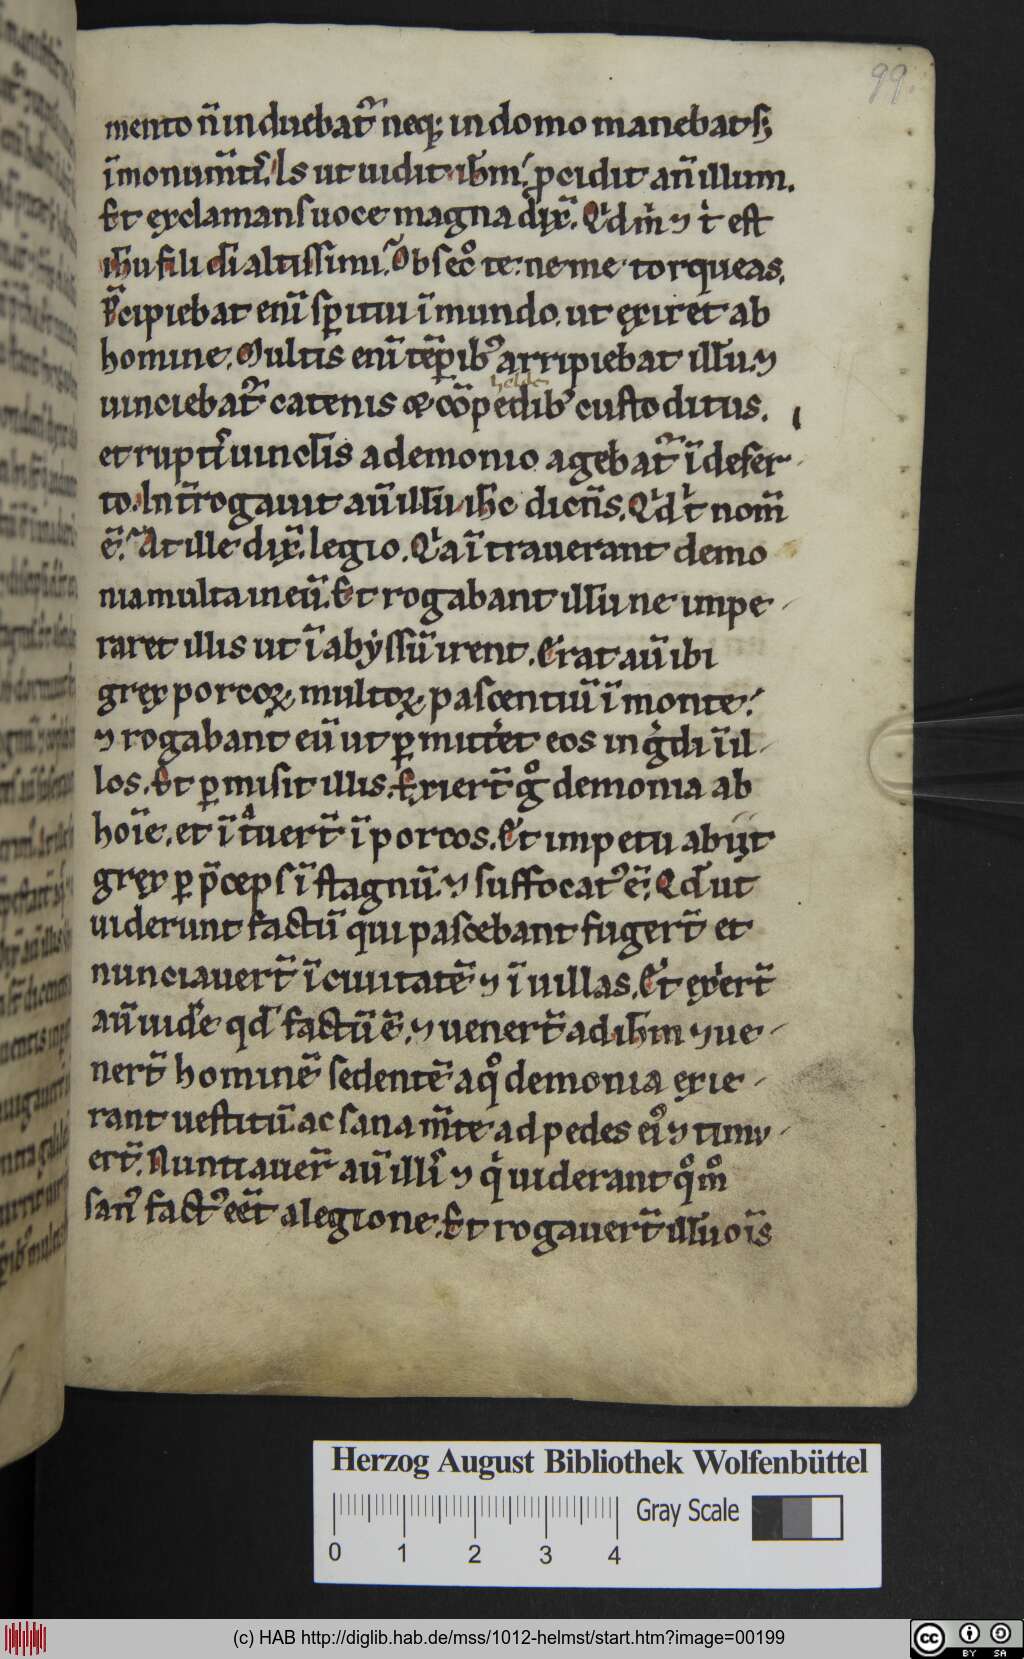 99
mento n̄ induebat᷑ neq; in domo manebat s;
ī monum̄tꝭ. Is ut uidit ih̄m. ꝓcidit an̄ illum.
Et exclamans uoce magna dix̄. Qͥd m̄ ⁊ tͥ est
ih̄u fili dī altissimi. Obsecͦ te ne me torqueas.
P̄cipiebat enī sp̄itui īmundo. ut exiret ab
homine. Multis enī tēꝑibꝰ arripiebat illū. ⁊
helde
uinciebat᷑ catenis & cōpedibꝰ custoditus.
et ruptꝭ uinclīs a demonio agebat᷑ ī deser
to. Int̄rogauit aū illū ih̄c dicn̄s. Qͥd tͥ nom̄
ē. At ille dix̄. legio. Qͥa ītrauerant demo
nia multa in eū. Et rogabant illū ne impe
raret illis ut ī abyssū irent. Erat aū ibi
grex porcoꝝ multoꝝ pascentiū ī monte.
⁊ rogabant eū ut ꝑmittet eos ingͥdi ī il
los. Et ꝑmisit illis. Exiert̄ gͦ demonia ab
hoīe. et ītᷓuert̄ ī porcos. Et impetu abiit
grex ꝑ p̄ceps ī stagnū. ⁊ suffocatꝰ ē. Qd̄ ut
uiderunt factū qui pascebant fugert̄ et
nunciauert̄ ī ciuitatē ⁊ ī uillas. Et exͥert̄
aū uid̄e qd̄ factū ē. ⁊ uenert̄ ad ih̄m ⁊ ue
nert̄ hominē sedentē a qͦ demonia exie
rant uestitū. ac sana m̄te ad pedes eiꝰ ⁊ timu
ert̄. Nuntiauer̄ aū illꝭ ⁊ qͥ uiderant qͦmͦ
sanꝰ factꝰ eēt a legione. Et rogauert̄ illū oīs
Herzog August Bibliothek Wolfenbüttel
Gray Scale
0 1 2 3 4
(c) HAB http://diglib.hab.de/mss/1012-helmst/start.htm?image=00199
cc BY SA